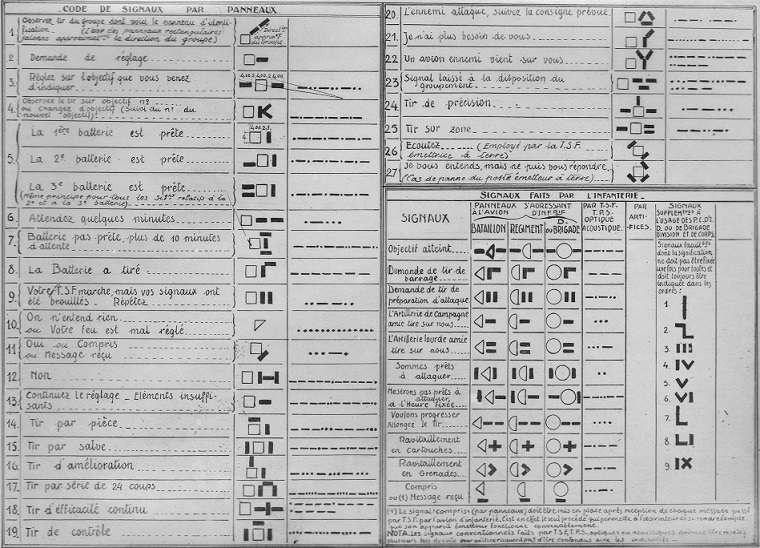 CODE DE SIGNAUX PAR PANNEAUX
1. Observez tir du groupe dont voici le panneau d'identi-
fication. (L'axe des panneaux rectangulaires
jalonne approximativt la direction du groupe)
Directn
approxve
du Groupe
2 Demande de réglage
3. Réglez sur l'objectif que vous venez
d'indiquer
400 400 400
4. Observez le tir sur objectif n°
ou changez d'objectif (Suivi du n° du
nouvel objectif)
5. La 1ère batterie est prête
La 2e batterie est prête
La 3e batterie est prête
(même principe pour tous les relatifs à la
2e et à la 3e batterie)
6. Attendez quelques minutes
7. Batterie pas prête, plus de 10 minutes
d'attente
8. La Batterie a tiré
9. Votre T.S.F. marche, mais vos signaux ont
été brouillés. Répétez
10. On n'entend rien
ou Votre feu est mal réglé
11 Oui ou Compris
ou Message reçu
12 Non
13. Continuez le réglage _ Eléments insuffi-
sants
14. Tir par pièce
15. Tir par salve
16. Tir d'amélioration
17. Tir par série de 24 coups
18. Tir d'éfficacité continu
19. Tir de contrôle
20. L'ennemi attaque, suivez la consigne prévue
21. Je n'ai plus besoin de vous
22. Un avion ennemi vient sur vous
23 Signal laissé à la disposition du
groupement
24 Tir de précision
25 Tir sur zone
26 Ecoutez (Employé par la T.S.F.
émettrice à terre)
27 Je vous entends, mais ne puis vous répondre
(Cas de panne du poste émetteur à terre)
SIGNAUX FAITS PAR L'INFANTERIE
SIGNAUX
PANNEAUX S'ADRESSANT
À L'AVION D'INFRIE
BATAILLON
RÉGIMENT
D.
ou BRIGADE
PAR T.S.F.
T.P.S.
OPTIQUE
ACOUSTIQUE.
PAR
ARTI-
FICES.
SIGNAUX
À
L'USAGE DES P.C. D'I.
D. OU DE BRIGADE
DIVISION ET DE CORPS
Objectif atteint
Demande de tir de
barrage
Demande de tir de
préparation d'attaque
L'Artillerie de Campagne
amie tire sur nous
L'Artillerie lourde amie
tire sur nous
Sommes prêts
à attaquer
Ne serons pas prêts à
attaquer
à l'Heure fixée
Voulons progresser
Allongez le tir
Ravitaillement
en cartouches
Ravitaillement
en Grenades
Compris
ou (1) Message reçu
Signaux
dont la signification
ne doit pas être fixée
une fois pour toutes et
doit toujours être
indiquée dans les
ordres:
1.
2.
3.
4.
5.
6.
7.
8.
9.
(1) Le signal "compris" (par panneaux) doit être mis en place après réception de chaque message passé
par T.S.F. par l'avion d'infanterie. C'est en effet le seul procédé qui permette à l'observateur de se rendre compte
que son appareil émetteur fonctionne convenablement.
NOTA. Les signaux conventionnels faits par T.S.F., T.P.S., optiques ou acoustiques